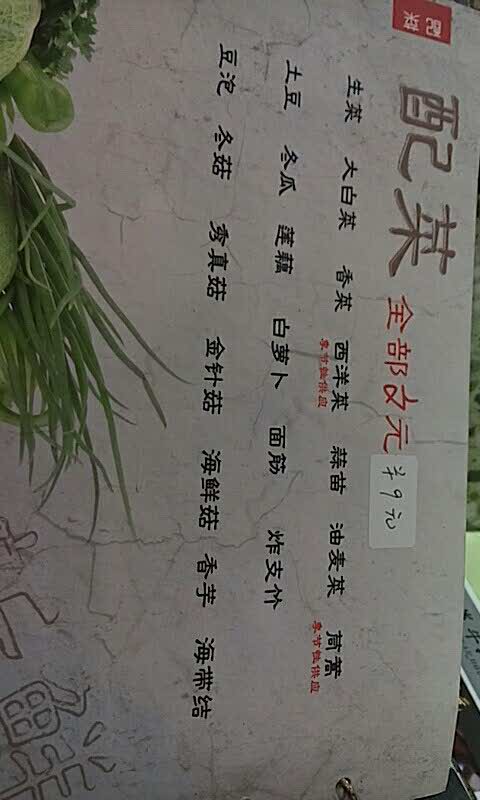 配菜
配菜 全部 元
￥9元
生菜 大白菜 香菜 西洋菜 蒜苗 油麦菜 茼蒿
季节性供应 季节性供应
土豆 冬瓜 莲藕 白萝卜 面筋 炸支竹
豆泡 冬菇 秀真菇 金针菇 海鲜菇 香芋 海带结